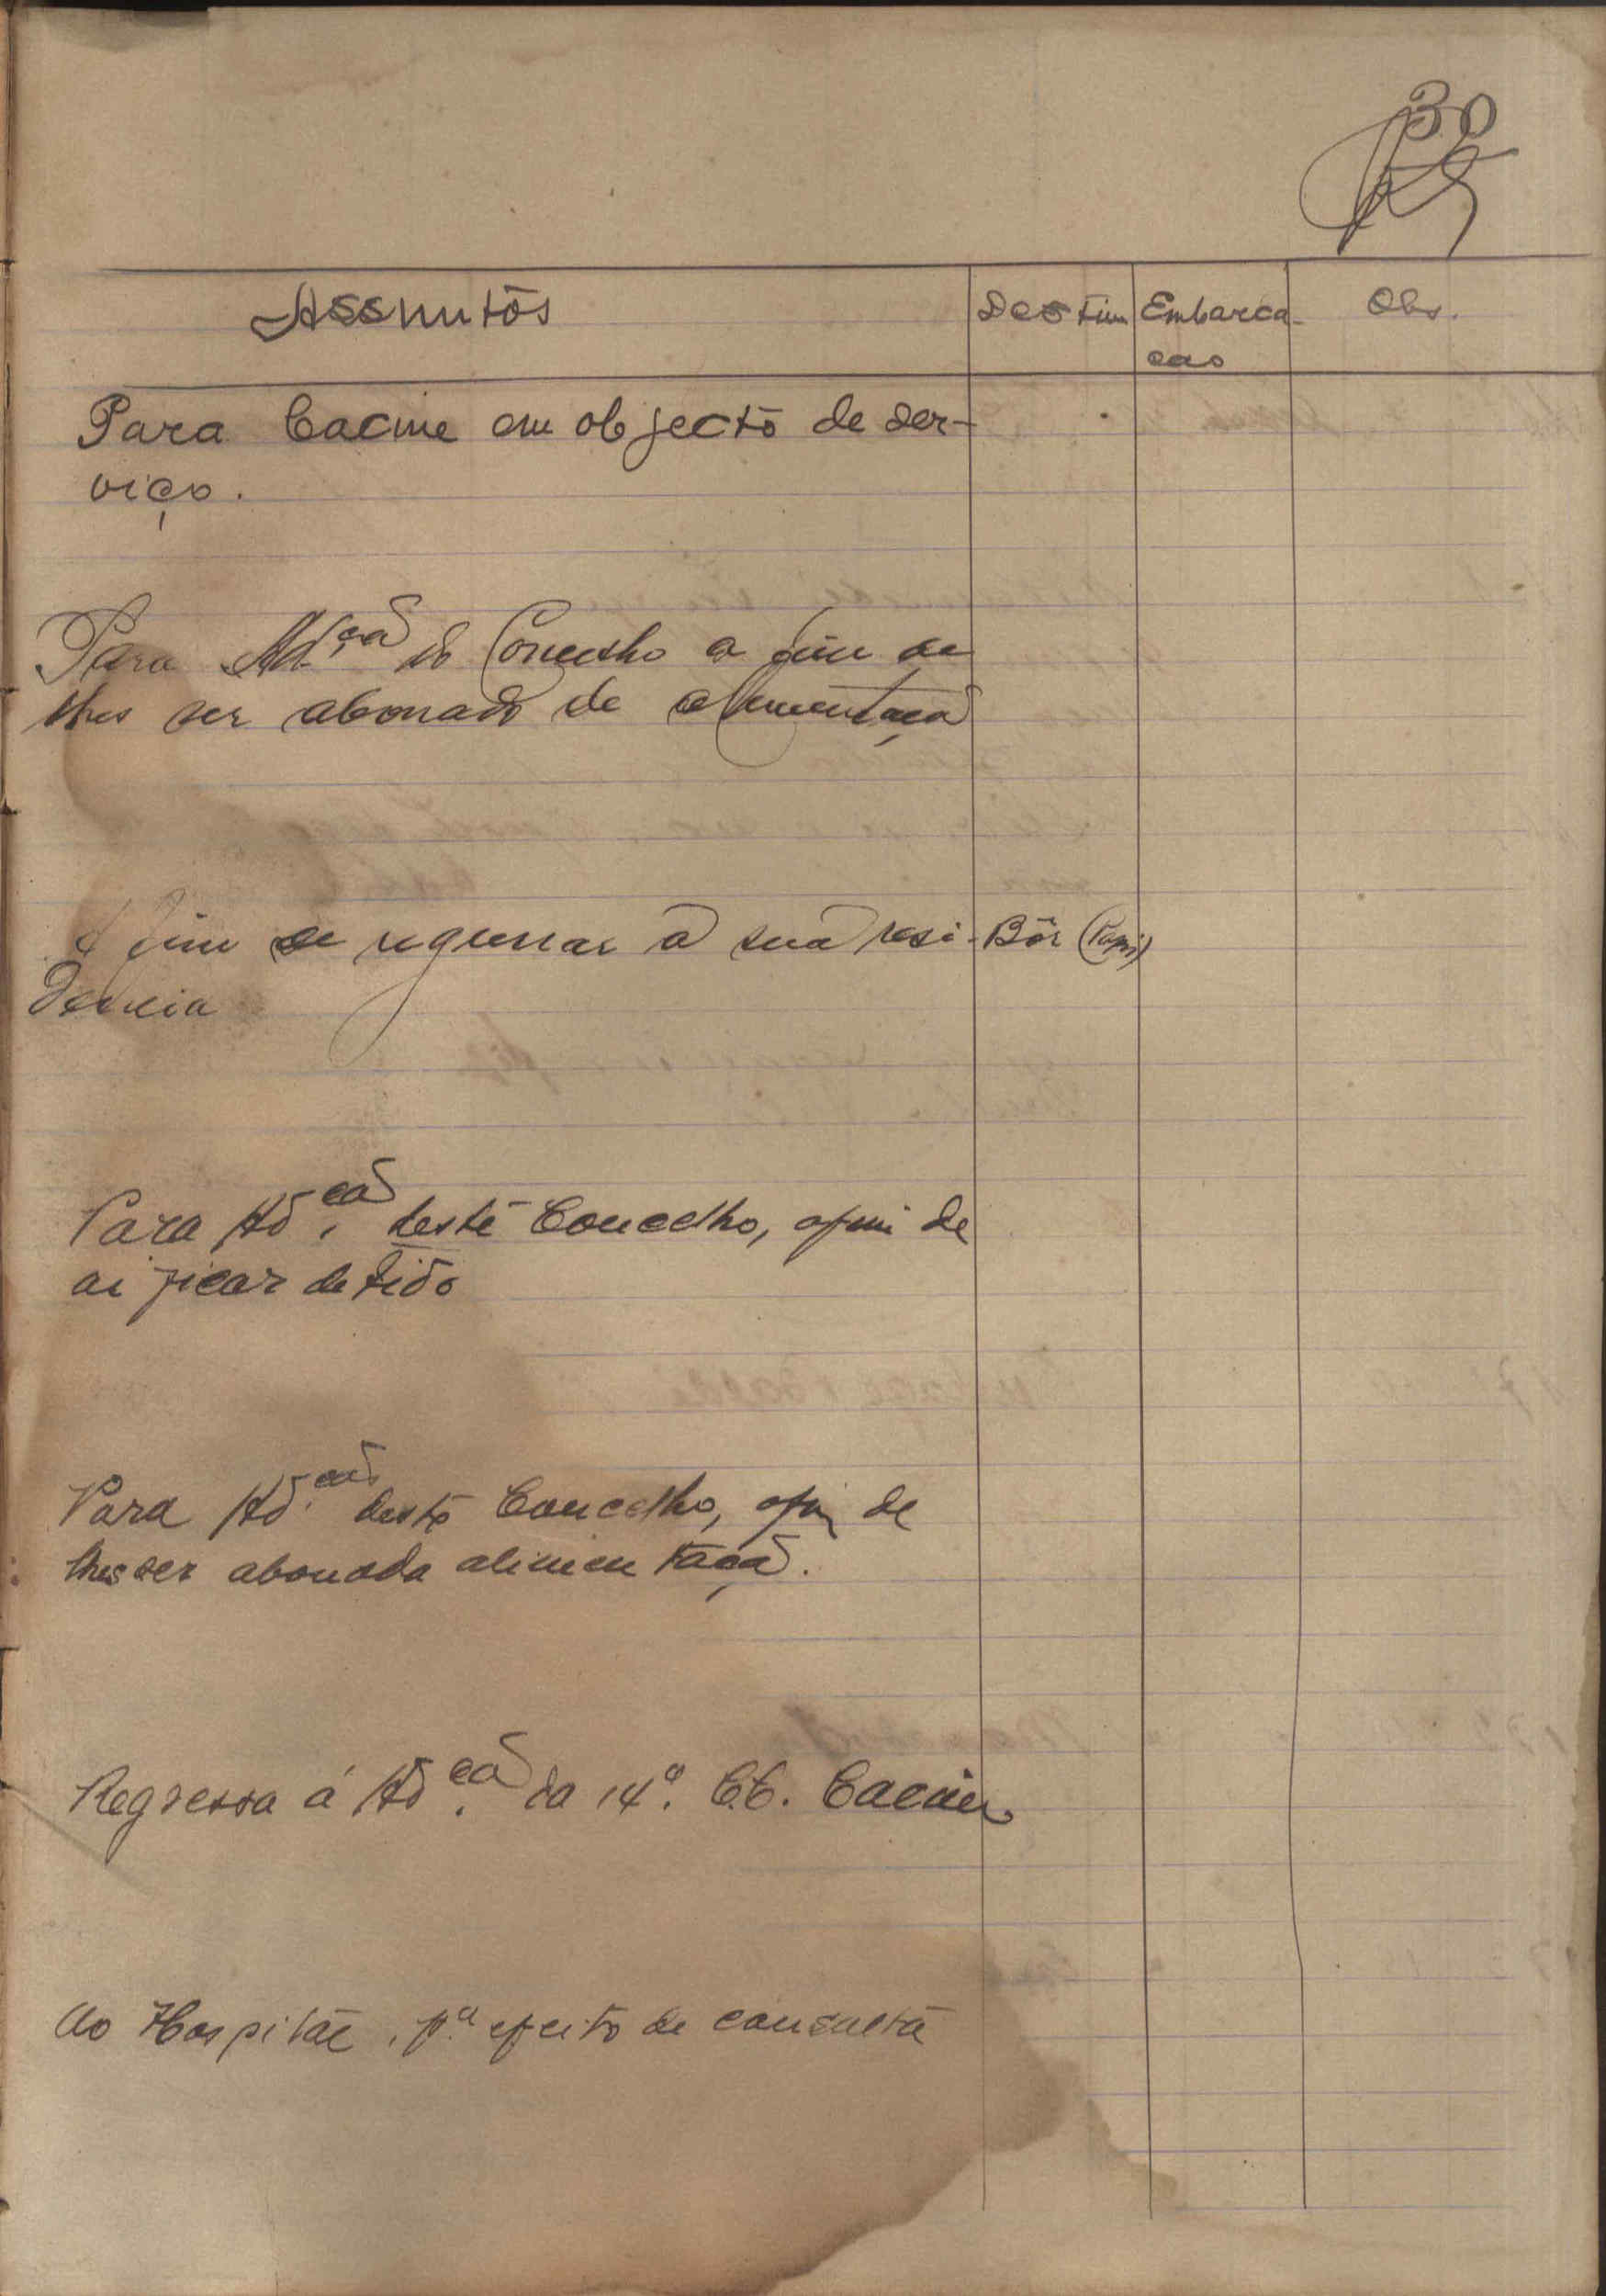 30
Assuntos Destino Embarca- Obs.
cao
Para Cacine em objecto de ser-
viço.
Para Ad.ção do Concelho a fim de
lhes ser abonado de alimentação
A fim de regressar á sua resi- Bôr (Papi)
dencia
Para Ad.ção deste Concelho, afim de
ai ficar detido
Para Ad.ção deste Concelho, afim de
lhes ser abonada alimentação.
Regressa á Ad.ção da 14ª. C.C. Cacine
Ao Hospital, pª efeito de consulta